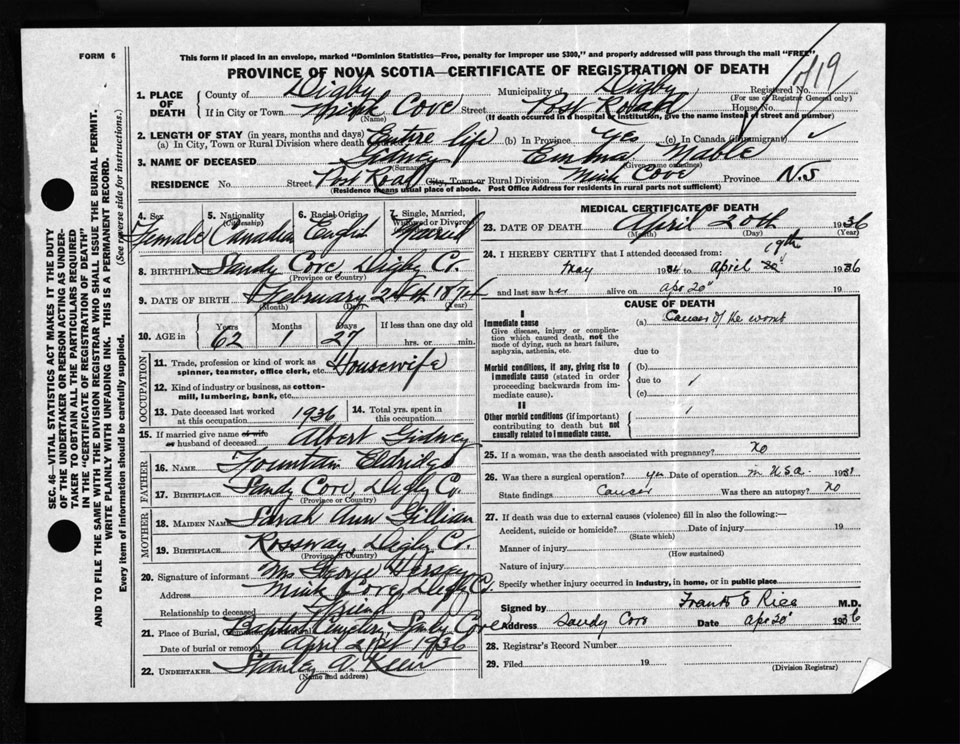 FORM 6
This form if placed in an envelope, marked "Dominion Statistics—Free, penalty for improper use $300," and properly addressed will pass through the mail "FREE"
PROVINCE OF NOVA SCOTIA—CERTIFICATE OF REGISTRATION OF DEATH
SEC. 46—VITAL STATISTICS ACT MAKES IT THE DUTY
OF THE UNDERTAKER OR PERSON ACTING AS UNDER-
TAKER TO OBTAIN ALL THE PARTICULARS REQUIRED
IN THE "CERTIFICATE OF REGISTRATION OF DEATH"
AND TO FILE THE SAME WITH THE DIVISION REGISTRAR WHO SHALL ISSUE THE BURIAL PERMIT.
WRITE PLAINLY WITH UNFADING INK. THIS IS A PERMANENT RECORD.
Every item of information should be carefully supplied. (See reverse side for instructions.)
1. PLACE OF DEATH
County of Digby Municipality of Digby Registered No.
(For use of Registrar General only)
If in City or Town Mink Cove Street Post Road House No.
(Name) (If death occurred in a hospital or institution, give the name instead of street and number)
2. LENGTH OF STAY (in years, months and days)
(a) In City, Town or Rural Division where death Entire life (b) In Province Yes (c) In Canada (if immigrant) ✓
3. NAME OF DECEASED Gidney Emma Mable
(Surname) (Given names)
RESIDENCE No Street Post Road City, Town or Rural Division Mink Cove Province N.S
(Residence means usual place of abode. Post Office Address for residents in rural parts not sufficient)
4. Sex 5. Nationality (Citizenship) 6. Racial Origin 7. Single, Married, Widowed or Divorced
Female Canadian English Married
8. BIRTHPLACE Sandy Cove, Digby Co.
(Province or Country)
9. DATE OF BIRTH February 24th 1874
(Month) (Day) (Year)
10. AGE in Years Months Days If less than one day old
62 1 27 hrs. or min.
OCCUPATION
11. Trade, profession or kind of work as spinner, teamster, office clerk, etc. Housewife
12. Kind of industry or business, as cotton-mill, lumbering, bank, etc.
13. Date deceased last worked at this occupation 1936 14. Total yrs. spent in this occupation
15. If married give name of wife or husband of deceased Albert Gidney
FATHER
16. NAME Fountain Eldridge
17. BIRTHPLACE Sandy Cove Digby Co.
(Province or Country)
MOTHER
18. MAIDEN NAME Sarah Ann Gillian
19. BIRTHPLACE Rossway, Digby Co.
(Province or Country)
20. Signature of informant Mrs George Hersey
Address Mink Cove, Digby C.
Relationship to deceased Friend
21. Place of Burial, Baptist Sandy Cove
Date of burial or removal April 21st 1936
22. UNDERTAKER Stanley A.
(Name and address)
MEDICAL CERTIFICATE OF DEATH
23. DATE OF DEATH April 20th 1936
(Month) (Day) (Year)
24. I HEREBY CERTIFY that I attended deceased from: 19th
May 193 to April 1936
and last saw her alive on Apr 20" 19
CAUSE OF DEATH
I
Immediate cause (a) Cancer of the
Give disease, injury or complication which caused death, not the mode of dying, such as heart failure, asphyxia, asthenia, etc.
due to
Morbid conditions, if any, giving rise to immediate cause (stated in order proceeding backwards from immediate cause). (b)
due to
(c)
II
Other morbid conditions (if important) contributing to death but not causally related to immediate cause.
25. If a woman, was the death associated with pregnancy? No
26. Was there a surgical operation? yes Date of operation in U.S.A. 1931
State findings Cancer Was there an autopsy? No
27. If death was due to external causes (violence) fill in also the following:—
Accident, suicide or homicide? Date of injury 19
(State which)
Manner of injury
(How sustained)
Nature of injury
Specify whether injury occurred in industry, in home, or in public place
Signed by Frank E Rice M.D.
Address Sandy Cove Date Apr 20" 1936
28. Registrar's Record Number
29. Filed 19
(Division Registrar)